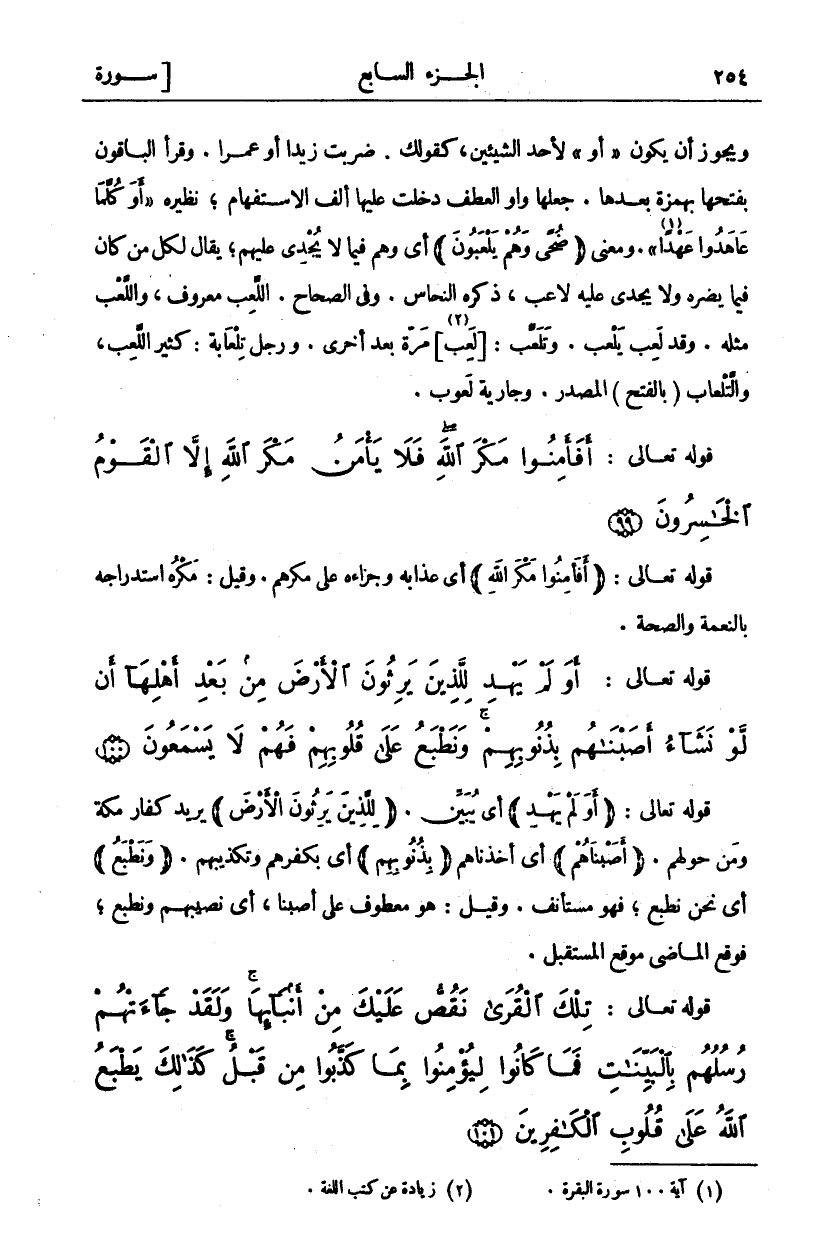 ٢٥٤ الجزء السابع [ سورة
ويجوز أن يكون « أو » لأحد الشيئين، كقولك . ضربت زيدا أو عمرا . وقرأ الباقون
بفتحها بهمزة بعدها . جعلها واو العطف دخلت عليها ألف الاستفهام ؛ نظيره « أَوَ كُلَّمَا
عَاهَدُوا عَهْدًا (١) » . ومعنى ﴿ ضُحًى وَهُمْ يَلْعَبُونَ ﴾ أى وهم فيما لا يُجْدِى عليهم؛ يقال لكل من كان
فيما يضره ولا يجدى عليه لاعب ، ذكره النحاس . وفى الصحاح . اللَّعِب معروف ، واللَّعْب
مثله . وقد لَعِب يَلْعب . وتَلَعَّب : [لَعِب] (٢) مَرّة بعد أخرى . ورجل تِلْعَابة : كثير اللَّعِب،
والتَّلْعاب ( بالفتح ) المصدر . وجارية لَعوب .
قوله تعالى : أَفَأَمِنُوا مَكْرَ ٱللَّهِ ۚ فَلَا يَأْمَنُ مَكْرَ ٱللَّهِ إِلَّا ٱلْقَوْمُ
ٱلْخَٰسِرُونَ ٩٩
قوله تعالى : ﴿ أَفَأَمِنُوا مَكْرَ اللهِ ﴾ أى عذابه وجزاءه على مكرهم . وقيل : مَكْرُه استدراجه
بالنعمة والصحة .
قوله تعالى : أَوَ لَمْ يَهْدِ لِلَّذِينَ يَرِثُونَ ٱلْأَرْضَ مِنۢ بَعْدِ أَهْلِهَآ أَن
لَّوْ نَشَآءُ أَصَبْنَٰهُم بِذُنُوبِهِمْ ۚ وَنَطْبَعُ عَلَىٰ قُلُوبِهِمْ فَهُمْ لَا يَسْمَعُونَ ١٠٠
قوله تعالى : ﴿ أَوَ لَمْ يَهْدِ ﴾ أى يُبَيِّن . ﴿ لِلَّذِينَ يَرِثُونَ الْأَرْضَ ﴾ يريد كفار مكة
ومَن حولهم . ﴿ أَصَبْنَاهُمْ ﴾ أى أخذناهم ﴿ بِذُنُوبِهِم ﴾ أى بكفرهم وتكذيبهم . ﴿ وَنَطْبَعُ ﴾
أى نحن نطبع ؛ فهو مستأنف . وقيل : هو معطوف على أصبنا ، أى نصيبهم ونطبع ؛
فوقع الماضى موقع المستقبل .
قوله تعالى : تِلْكَ ٱلْقُرَىٰ نَقُصُّ عَلَيْكَ مِنْ أَنۢبَآئِهَا ۚ وَلَقَدْ جَآءَتْهُمْ
رُسُلُهُم بِٱلْبَيِّنَٰتِ فَمَا كَانُوا لِيُؤْمِنُوا بِمَا كَذَّبُوا مِن قَبْلُ ۚ كَذَٰلِكَ يَطْبَعُ
ٱللَّهُ عَلَىٰ قُلُوبِ ٱلْكَٰفِرِينَ ١٠١
(١) آية ١٠٠ سورة البقرة . (٢) زيادة عن كتب اللغة .